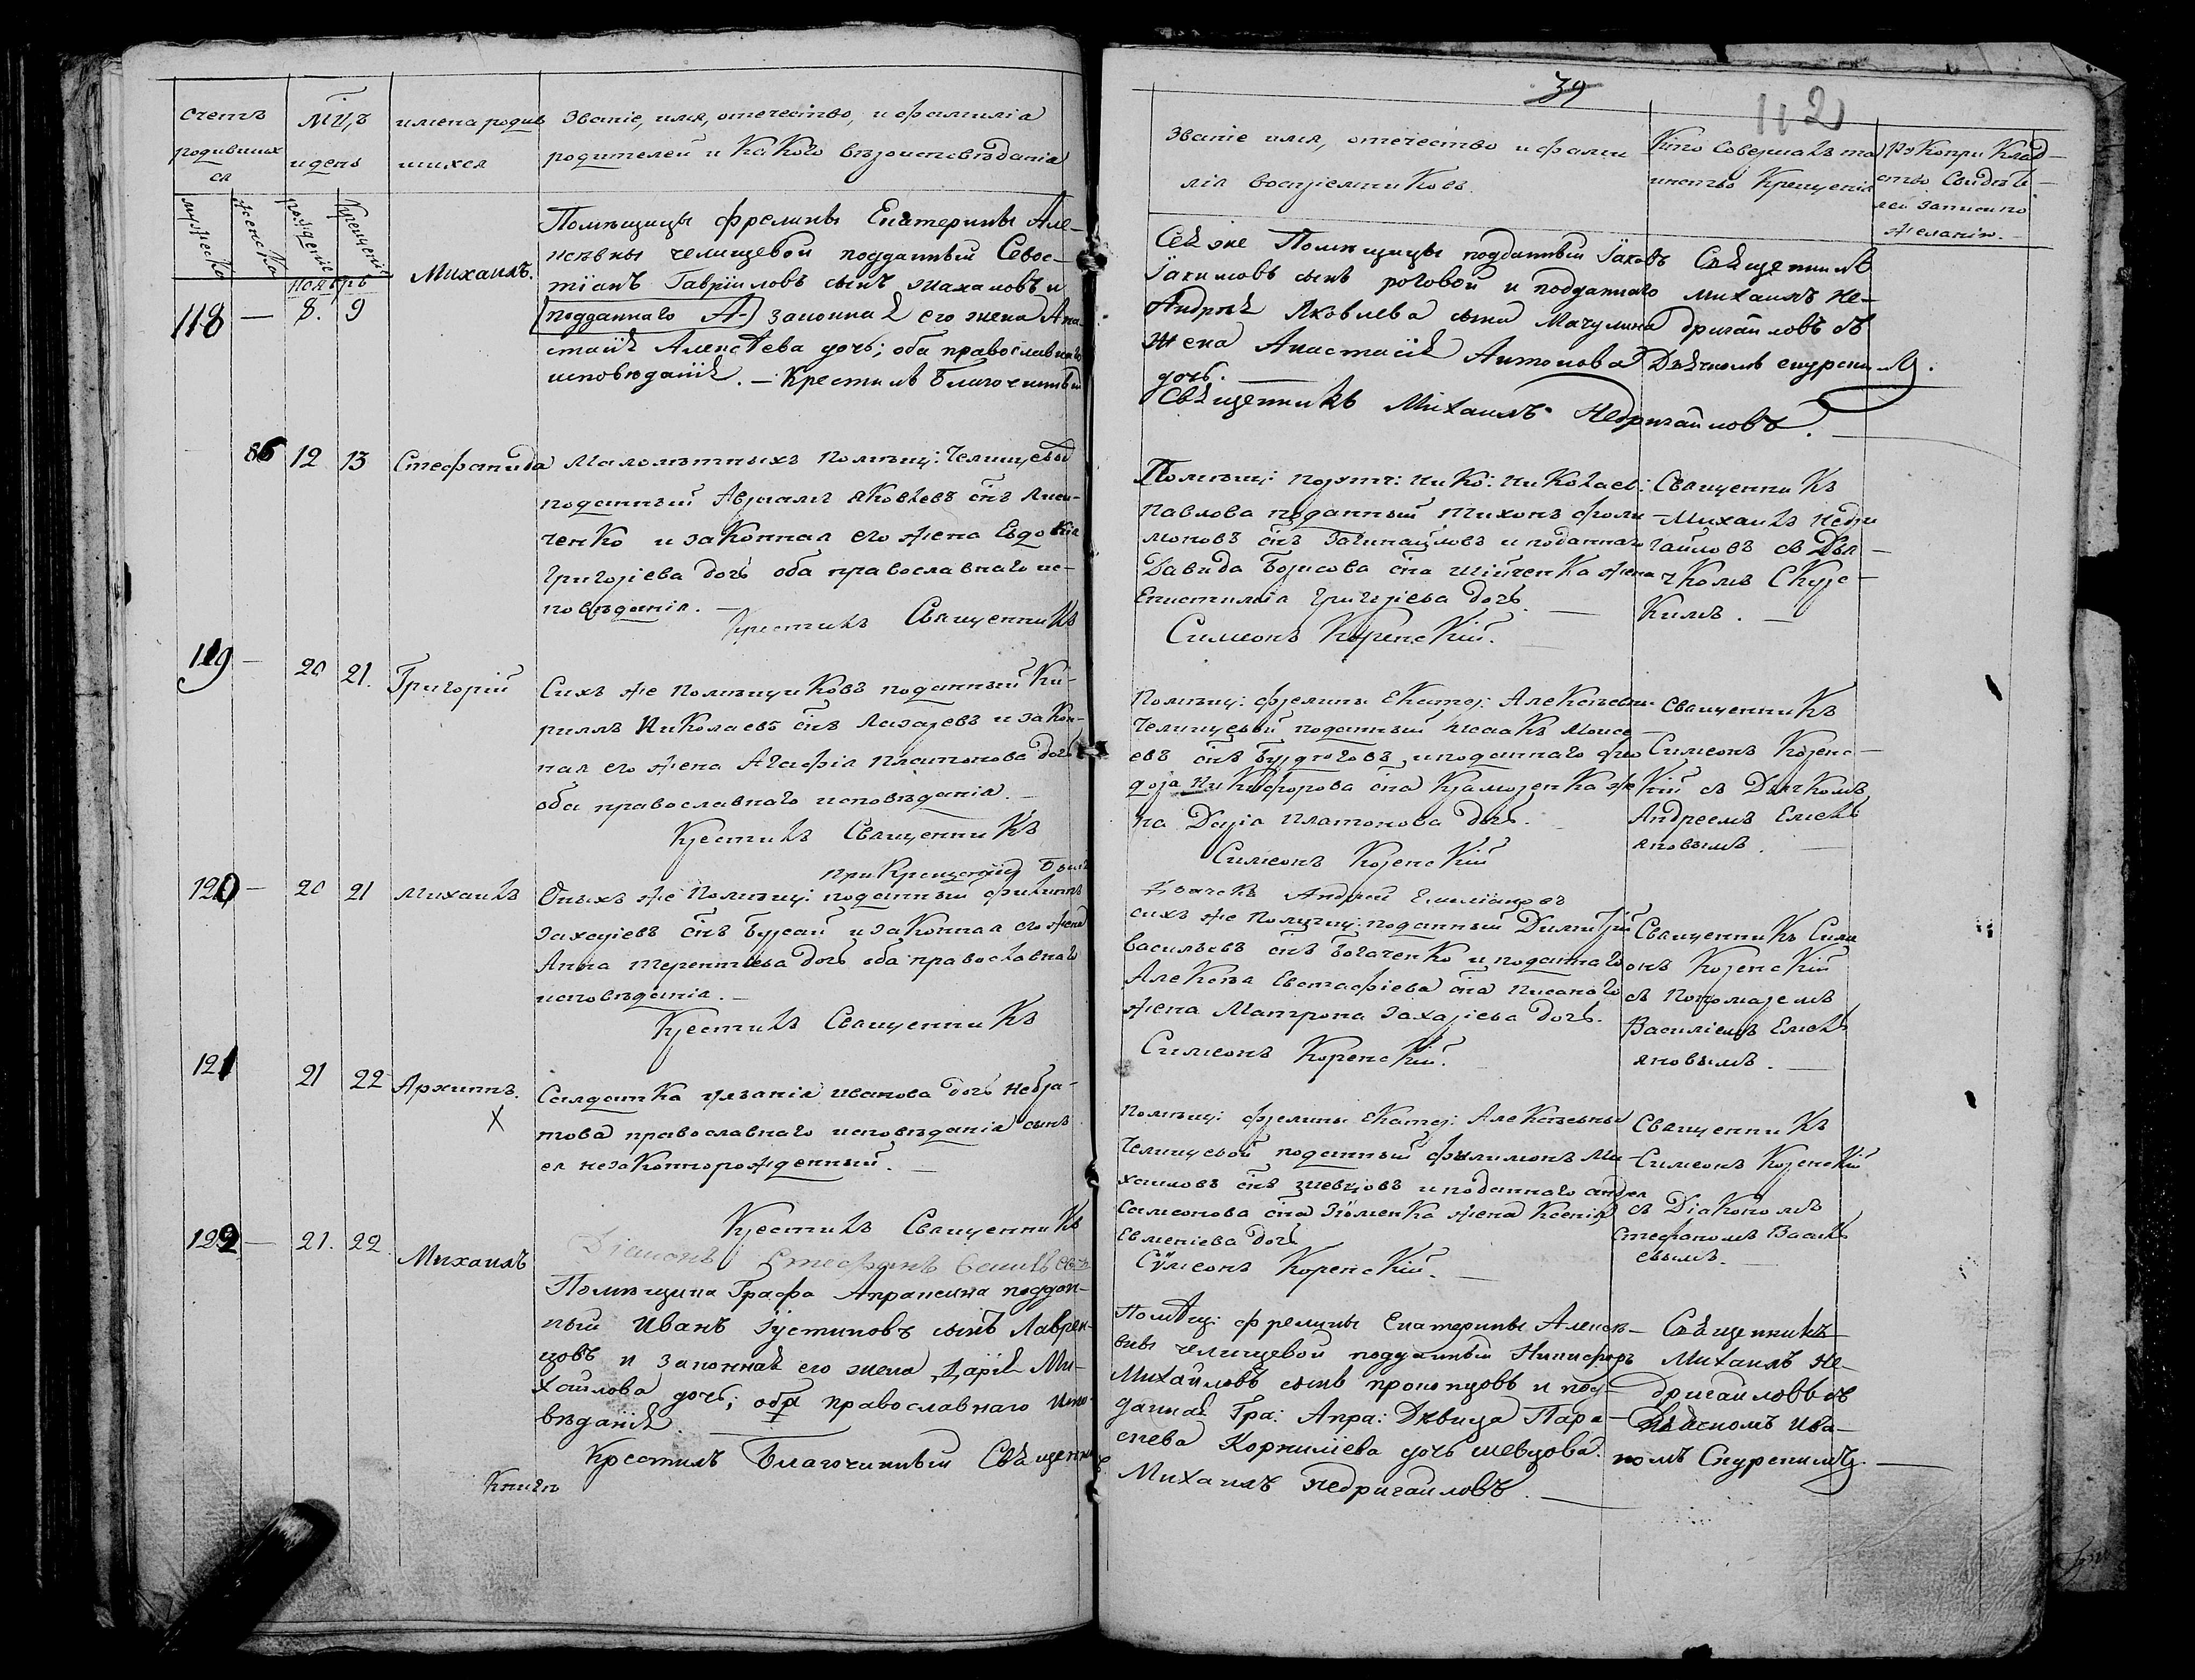 счетъ
родившихся
мужеска
женска
Мц,ъ
и день
рожденіе
крещеніе
имена родив
шихся
Званіе, имя, отечество, и фамилія
родителей и Какого вѣроисповѣданія
ноябръ
118 — 8. 9
Михаилъ.
Помѣщицы фрелины Екатерины Але-
ксѣвны челищевой подданный Севос-
тіанъ Гавріиловъ сынъ махаловъ и
(подданаго А-) законная его жена Ана
стасія Алексѣева дочь; оба православнаго
исповѣданія. — Крестилъ Благочинный
86 12 13 Стефанида
Малолѣтныхъ помѣщ: Челищевыхъ
поданный Аврамъ яковлевъ снъ Лиси-
ченко и законная его жена Евдокія
Григоріева дочь оба православнаго ис-
повѣданія. —
Крестилъ Священникъ
119 — 20 21. Григорій
Сихъ же помѣщиковъ поданный Ки-
риллъ Николаевъ снъ Лазаревъ и закон-
ная его жена Агафія платонова дочь
оба православнаго исповѣданія. —
Крестилъ Священникъ
при Крещеніи Былъ
120 — 20 21 Михаилъ
Оныхъ же помѣщ: поданный филиппъ
захаріевъ снъ Бугай и законная его жена
Анна терентіева дочь оба православнаго
исповѣданія. —
Крестилъ Священникъ
121 21 22 Архиппъ.
X
Салдатка улянія иванова дочь небра-
това православнаго исповѣданія сынъ
ея незаконнорожденный. —
Крестилъ Священникъ
Діаконъ Стефанъ Васильевъ
122 — 21. 22. Михаилъ
Помѣщика Графа Апраксина поддан-
ный Иванъ Іустиновъ сынъ Лаврен-
цовъ и законная его жена Дарія Ми-
хайлова дочь; оба православнаго испо-
вѣданія. —
Крестилъ Благочинный Священникъ
Книги
39
112
Званіе имя, отечество и фами
лія воспріемниковъ
Кто совершалъ та
инство Крещенія
Рукоприклад-
ство Свидѣте-
лей записи по
желанію.
Сея же Помѣщицы подданный Іаковъ
Іакимовъ сынъ роговой и подданаго
Андрея Яковлева сына Мачулина
жена Анастасія Антонова
дочь. —
Священникъ Михаилъ Недригайловъ. —
Священникъ
Михаилъ Не-
дригайловъ съ
Дьячкомъ скурски-
м.
Помѣщ: поруч: Нико: Николаев:
павлова поданный тихонъ фили-
моновъ снъ и поданнаго
Давида Борисова сна жена
Епистимія Григоріева дочь —
Симеонъ Коренскій.
Священникъ
Михаилъ недри
гайловъ съ Дья-
чкомъ Скурс-
кимъ. —
Помѣщ: фрелины Екатер: Алексѣевны
Челищевой поданный Исаакъ Моисе-
евъ снъ и поданнаго фео
дора Никифорова сна жe
на Дарія платонова дочь.
Симеонъ Коренскій
Священникъ
Симеонъ Коренс-
кій съ Дьячкомъ
Андреемъ Емель
яновымъ. —
дьячекъ Андрей Емиліановъ
сихъ же помѣщ: поданный Димитрій
васильевъ снъ Богаченко и поданнаго
Алексѣя Евстафіева сна писанаго
жена Матрона Захаріева дочь.
Симеонъ Коренскій.
Священникъ Симе
онъ Коренскій
съ Пономаремъ
Василіемъ Емель
яновымъ. —
Помѣщ: фрелины Екатер: Алексѣевны
Челищевой поданный филимонъ Ми-
хаиловъ снъ шевцовъ и поданнаго андрея
Самсонова сна жена Ксенія
Евменіева дочь
Сѵмеонъ Коренскій. —
Священникъ
Симеонъ Коренскій
съ Діакономъ
Стефаномъ Василь
евымъ. —
Помѣщ: фрелины Екатерины Алексѣ-
вны челищевой подданный Никифоръ
Михайловъ сынъ прокопцовъ и под-
данная Гра: Апра: Дѣвица Пара-
скева Корниліева дочь шевцова.
Михаилъ Недригайловъ. —
Священникъ
Михаилъ Не-
дригайловъ съ
Дьячкомъ Ива-
номъ Скурскимъ. —